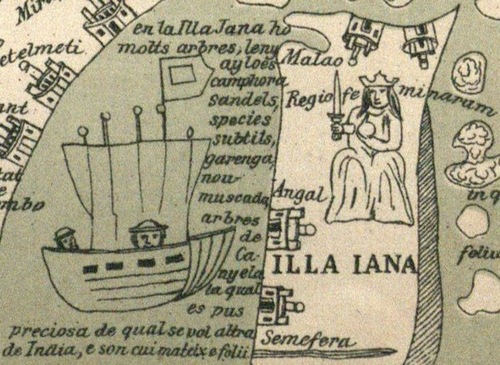 en la Illa Jana ho
molts arbres, leny
ayloes
camphora
sandels,
species
subtils,
garenga
nou-
muscada
arbres
de
Ca-
nyela
la qual
es pus
preciosa de qual se vol altra
de India, e son cui mateix e folii
Malao
Regio feminarum
Angal
ILLA IANA
Semefera
etelmeti
ant
tat
mbo
in q
foliu